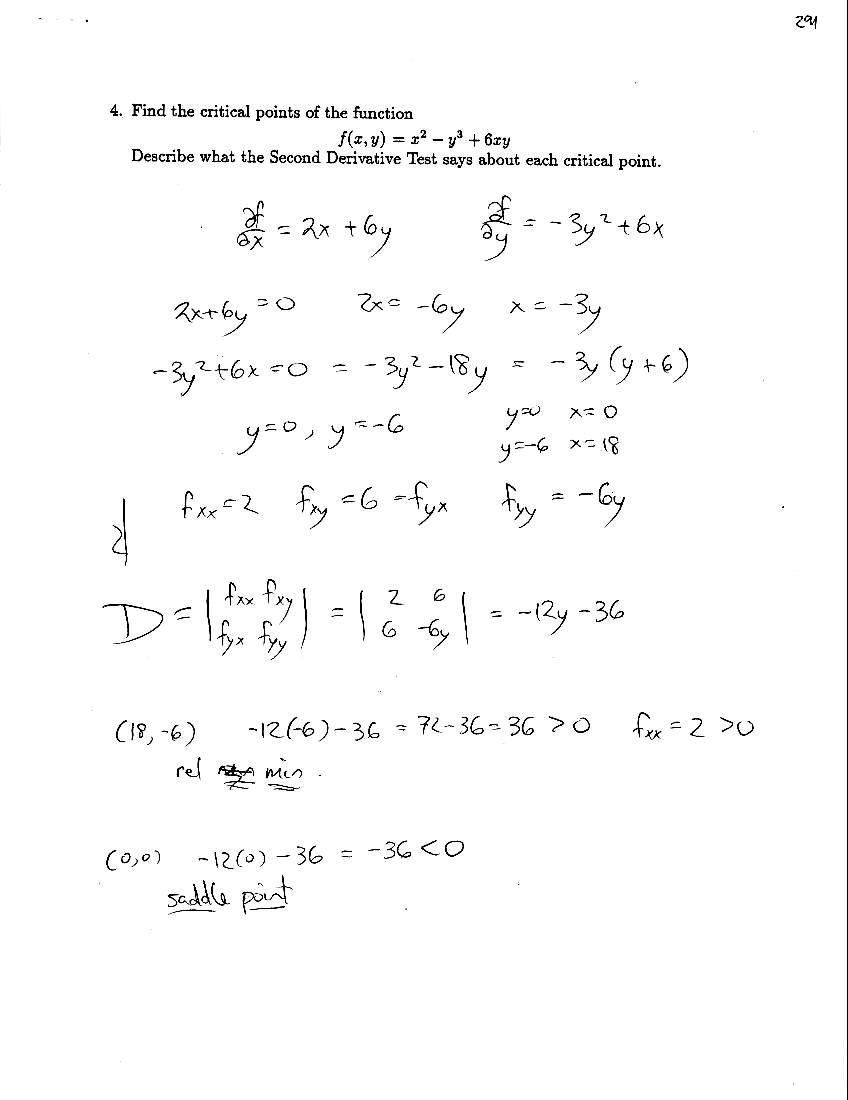 294
4. Find the critical points of the function
f(x, y) = x² − y³ + 6xy
Describe what the Second Derivative Test says about each critical point.
∂f/∂x = 2x + 6y ∂f/∂y = -3y² + 6x
2x+6y = 0 2x = -6y x = -3y
-3y²+6x = 0 = -3y² - 18y = -3y (y+6)
y=0, y=-6 y=0 x=0
y=-6 x=18
fxx = 2 fxy = 6 = fyx fyy = -6y
D = | fxx fxy | = | 2 6 | = -12y - 36
| fyx fyy | | 6 -6y |
(18, -6) -12(-6) - 36 = 72 - 36 = 36 > 0 fxx = 2 > 0
rel min.
(0,0) -12(0) - 36 = -36 < 0
saddle point